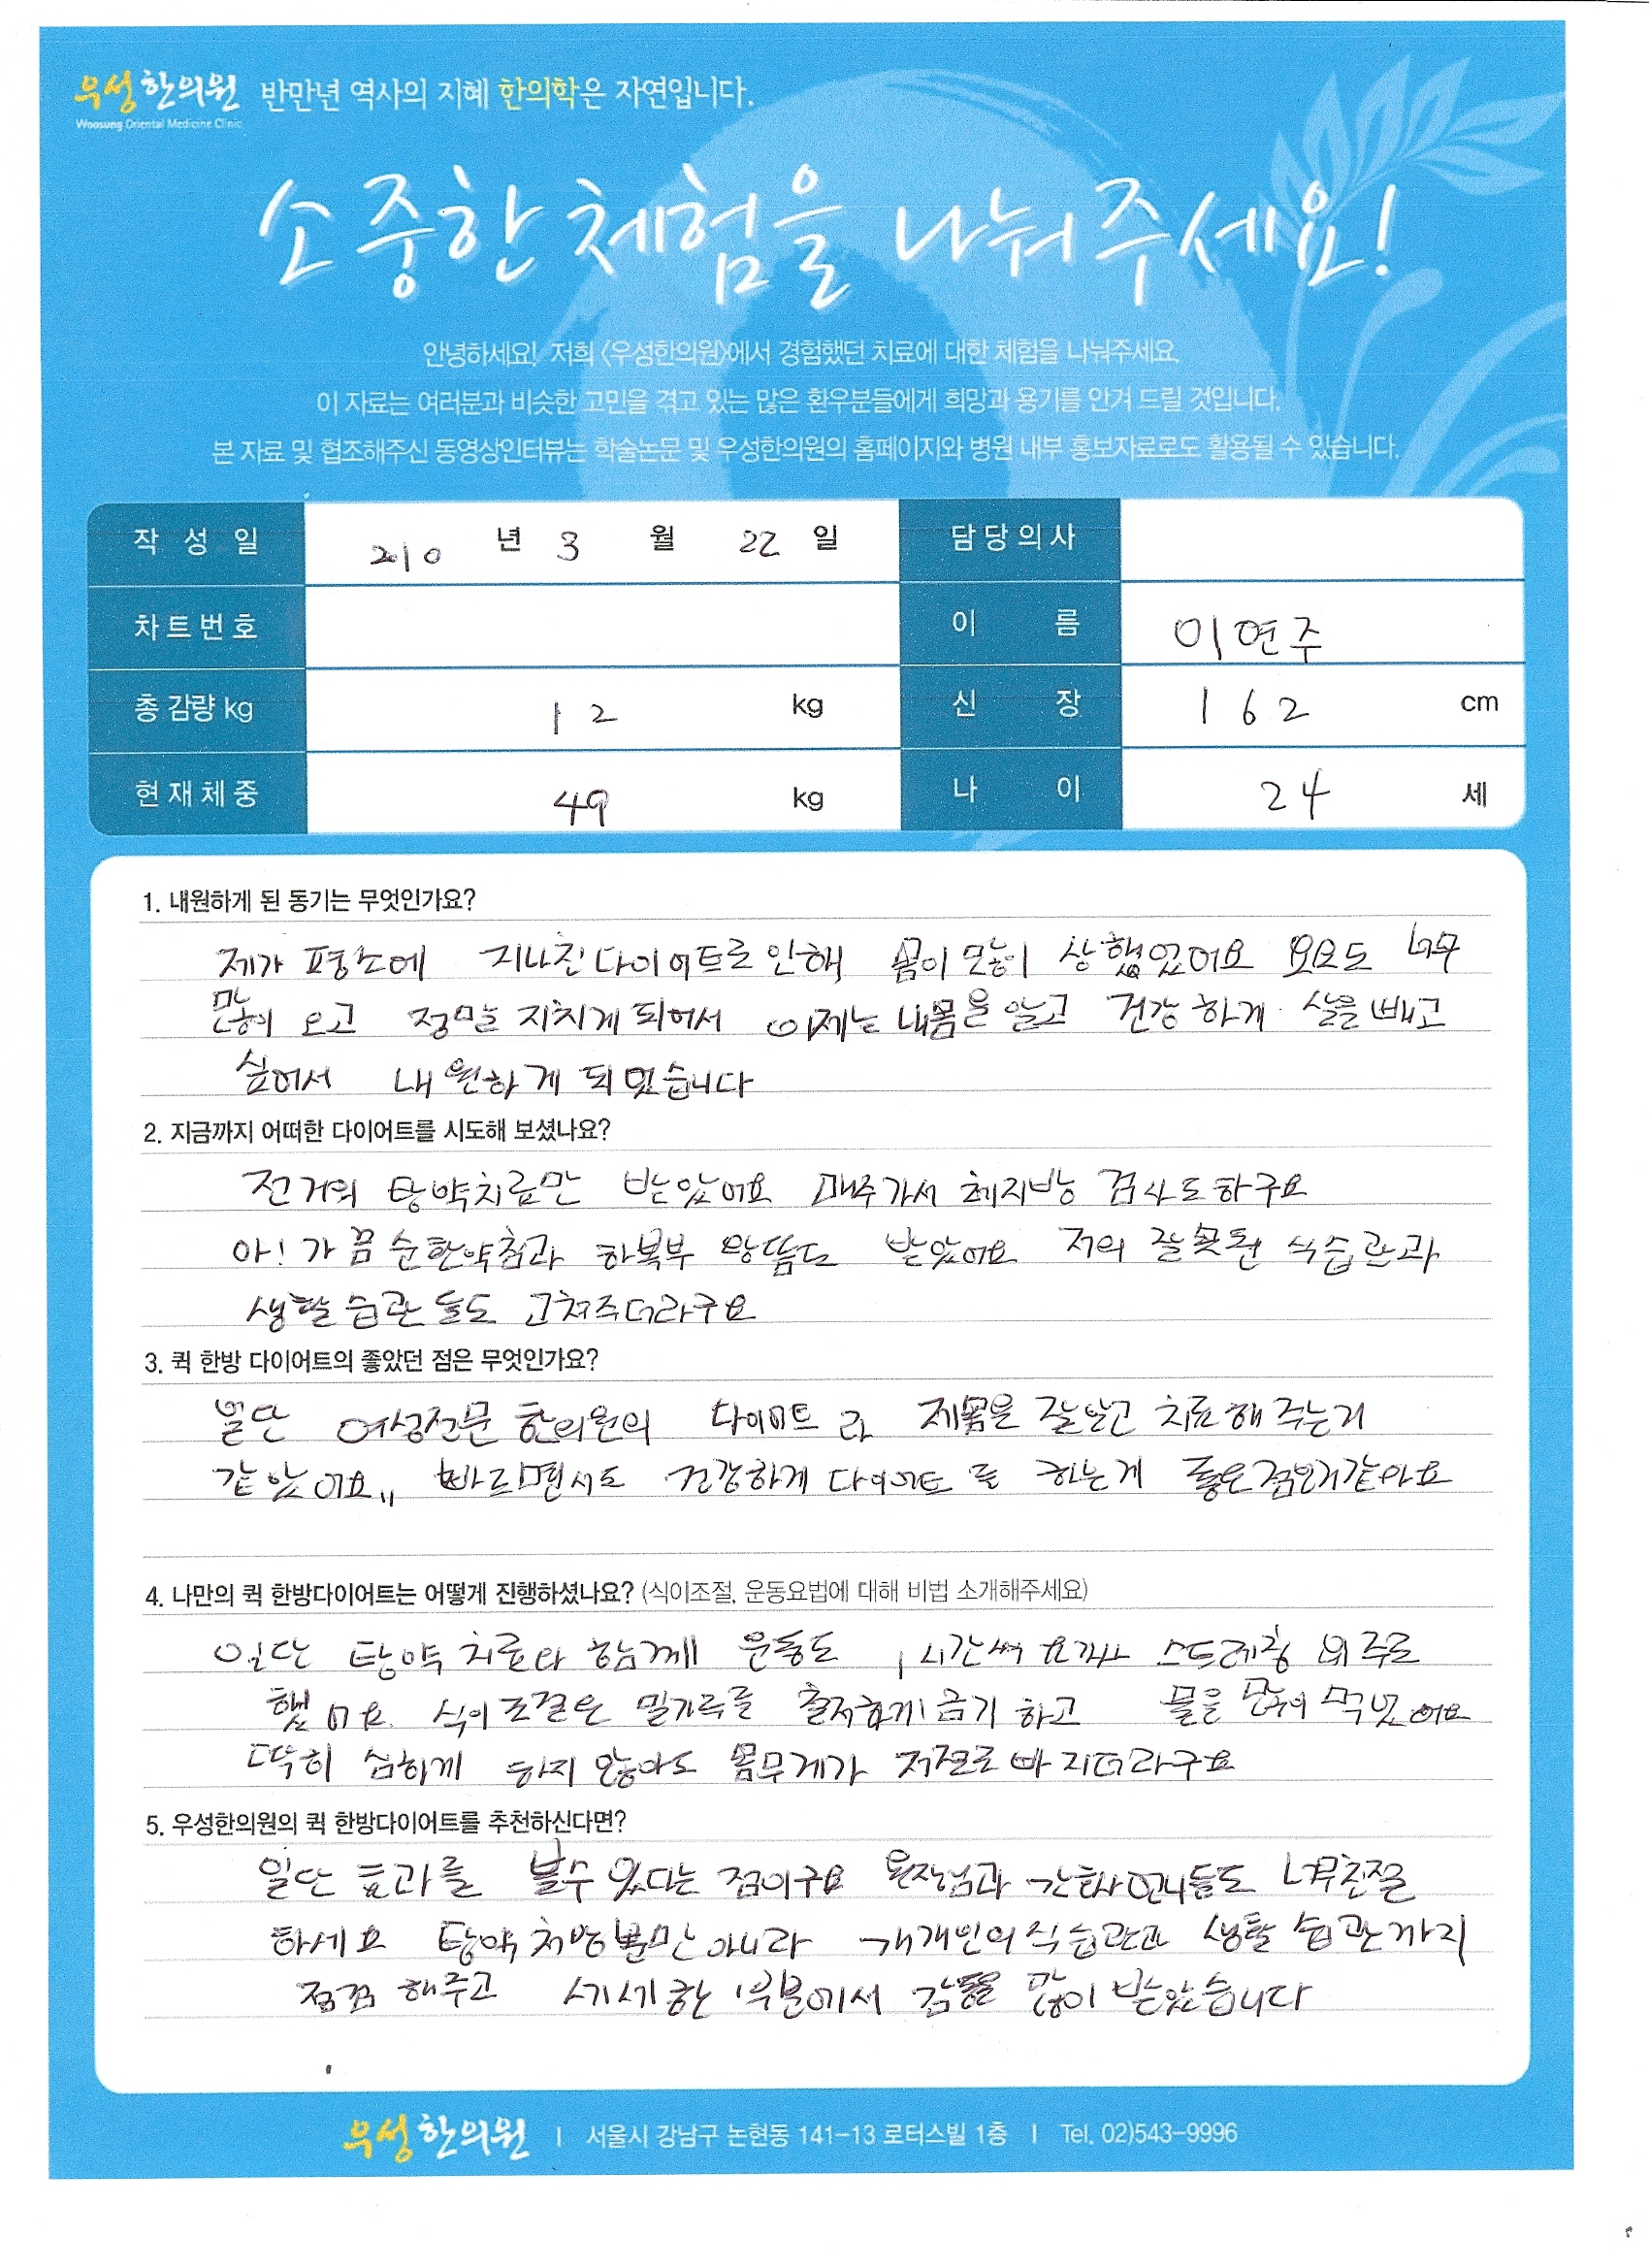 우성한의원 반만년 역사의 지혜 한의학은 자연입니다.
Woosung Oriental Medicine Clinic
소중한 체험을 나눠주세요!
안녕하세요! 저희 <우성한의원>에서 경험했던 치료에 대한 체험을 나눠주세요.
이 자료는 여러분과 비슷한 고민을 겪고 있는 많은 환우분들에게 희망과 용기를 안겨 드릴 것입니다.
본 자료 및 협조해주신 동영상인터뷰는 학술논문 및 우성한의원의 홈페이지와 병원 내부 홍보자료로도 활용될 수 있습니다.
작성일 2010 년 3 월 22 일 담당의사
차트번호 이름 이연주
총 감량 kg 12 kg 신장 162 cm
현재체중 49 kg 나이 24 세
1. 내원하게 된 동기는 무엇인가요?
제가 평소에 지나친 다이어트로 인해 몸이 많이 상했었어요 요요도 너무
많이 오고 정말 지치게 되어서 이제는 내몸을 알고 건강하게 살을 빼고
싶어서 내원하게 되었습니다
2. 지금까지 어떠한 다이어트를 시도해 보셨나요?
전 거의 탕약치료만 받았어요 매주가서 체지방 검사도하구요
아! 가끔 순환약침과 하복부 왕뜸도 받았어요 저의 잘못된 식습관과
생활습관들도 고쳐주더라구요
3. 퀵 한방 다이어트의 좋았던 점은 무엇인가요?
일단 여성전문 한의원의 다이어트라 제몸을 잘알고 치료해주는거
같았어요,, 빠르면서도 건강하게 다이어트를 하는게 좋은점인거같아요
4. 나만의 퀵 한방다이어트는 어떻게 진행하셨나요? (식이조절, 운동요법에 대해 비법 소개해주세요)
일단 탕약 치료와 함께 운동도 1시간씩 요가나 스트레칭 위주로
했어요 식이조절은 밀가루를 철저하게 금기 하고 물을 많이 먹었어요
딱히 심하게 하지 않아도 몸무게가 저절로 빠지더라구요
5. 우성한의원의 퀵 한방다이어트를 추천하신다면?
일단 효과를 볼수 있다는 점이구요 원장님과 간호사언니들도 너무친절
하세요 탕약 처방뿐만 아니라 개개인의 식습관과 생활 습관까지
점검 해주고 세세한 부분에서 감동을 많이 받았습니다
우성한의원 | 서울시 강남구 논현동 141-13 로터스빌 1층 | Tel. 02)543-9996